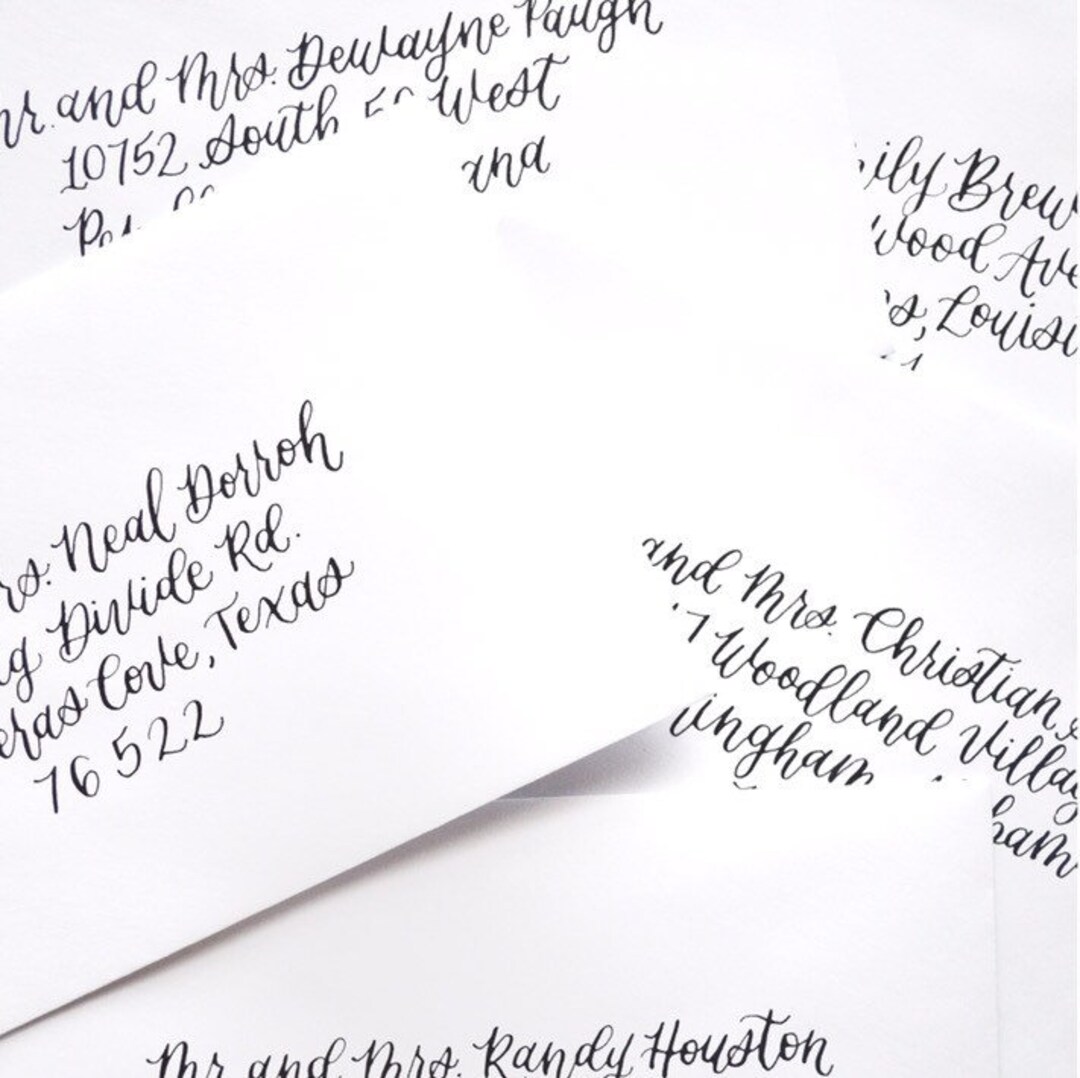 and Mrs. Dewayne Paugh
10752 South West
Brew
wood Ave
Louisi
Neal Dorroh
Divide Rd.
Cove, Texas
76522
and Mrs. Christian
7 Woodland Villag
ingham
ham
Mr. and Mrs. Randy Houston